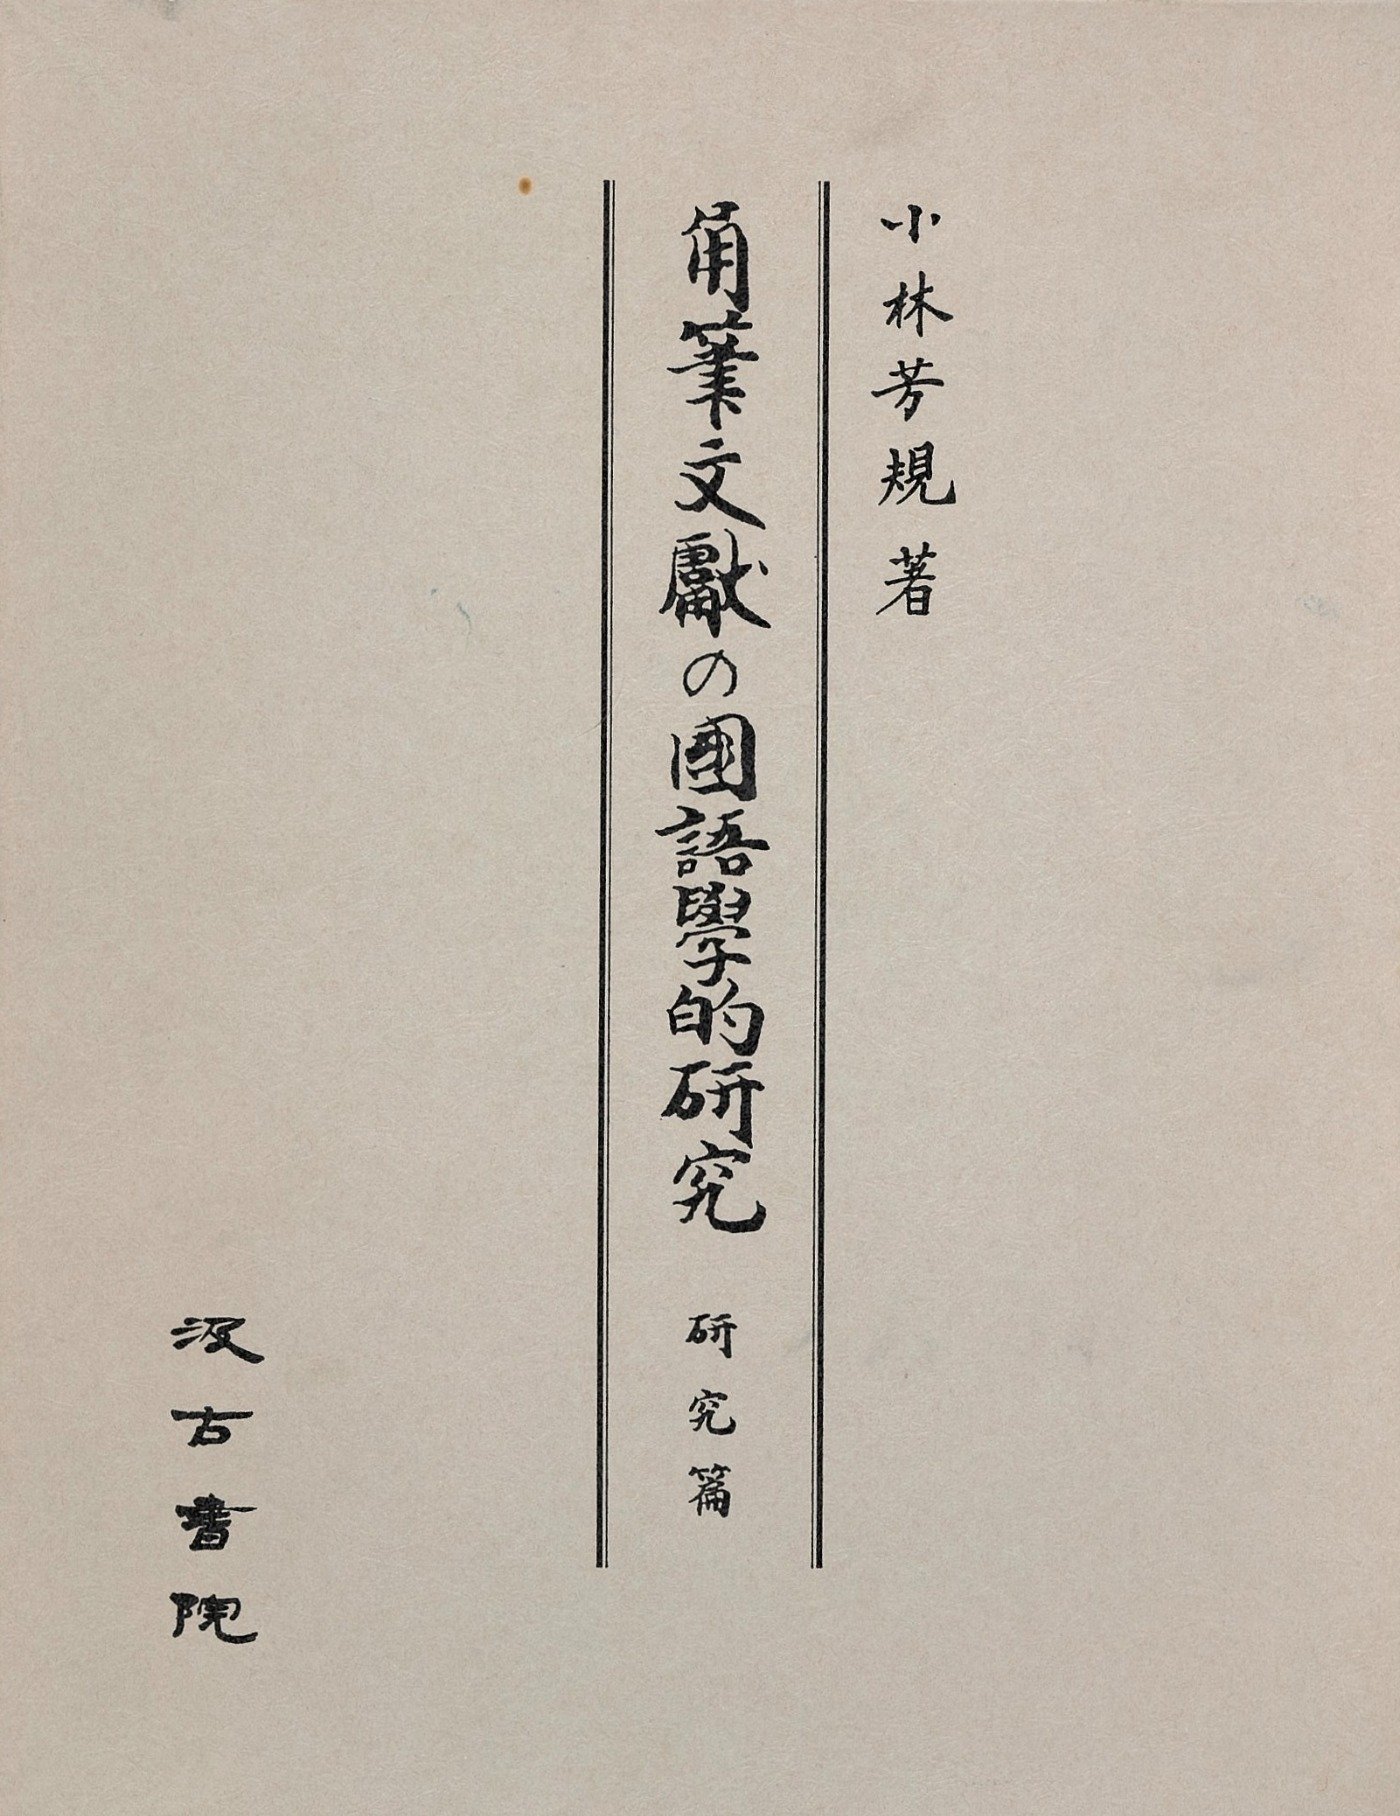 小林芳規 著
角筆文獻の國語學的研究 研究篇
汲古書院